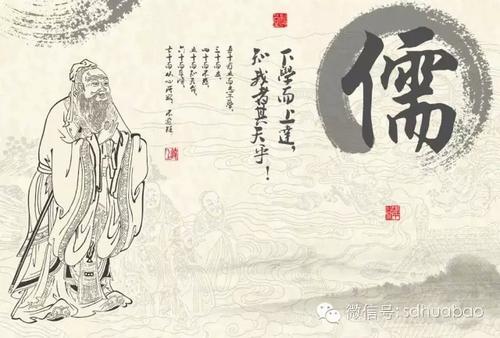 儒
下學而上達，
知我者其天乎！
吾十有五而志于學，
三十而立，
四十而不惑，
五十而知天命，
六十而耳順，
七十而從心所欲，
不逾矩
微信号: sdhuabao